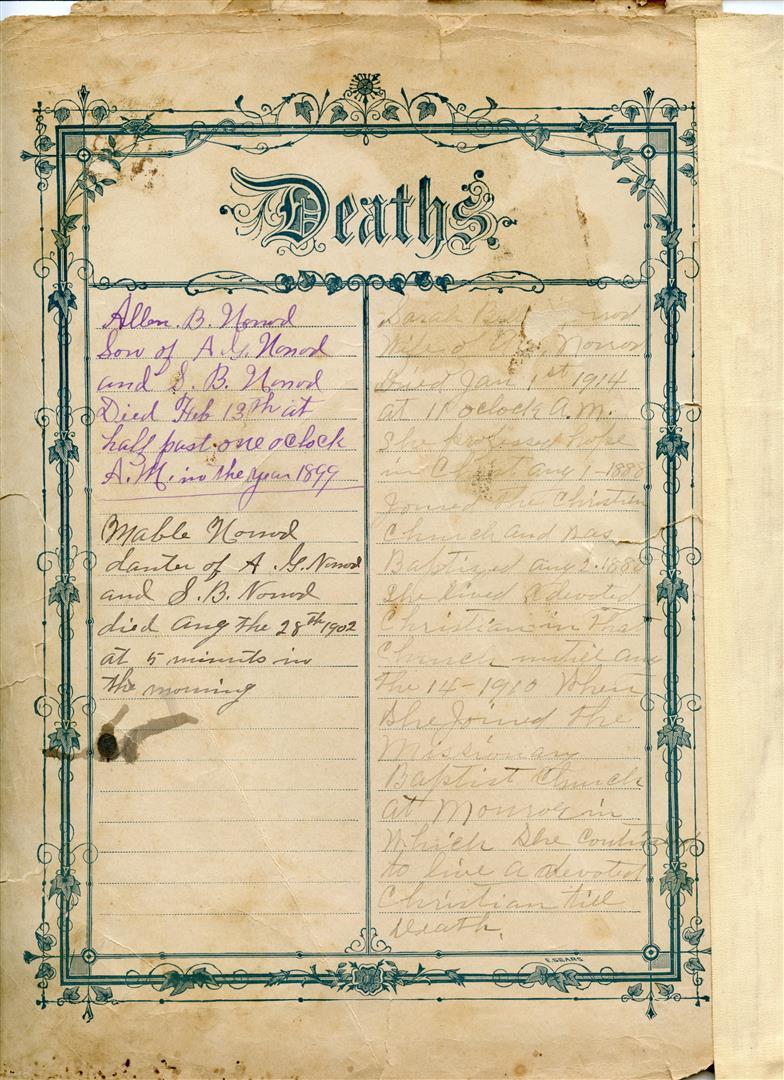 Deaths.
Allen. B. Norrod
Son of A. G. Norrod
and S. B. Norrod
Died Feb 13th at
half past one oclock
A. M. in the year 1899
Mable Norrod
dauter of A. G. Norrod
and S. B. Norrod
died Aug the 28th 1902
at 5 minuts in
the morning
Sarah
Wife of Norrod
Died Jan 1st 1914
at 11 oclock A.M.
She professed hope
in Christ Aug 1-1888
Joined the Christian
Church and was
Baptized Aug 2.1888
She lived a devoted
Christian in that
Church until Aug
the 14-1910 When
She Joined the
Missionary
Baptist Church
at Monroe in
Which She
to live a devoted
Christian till
Death.
E.SEARS